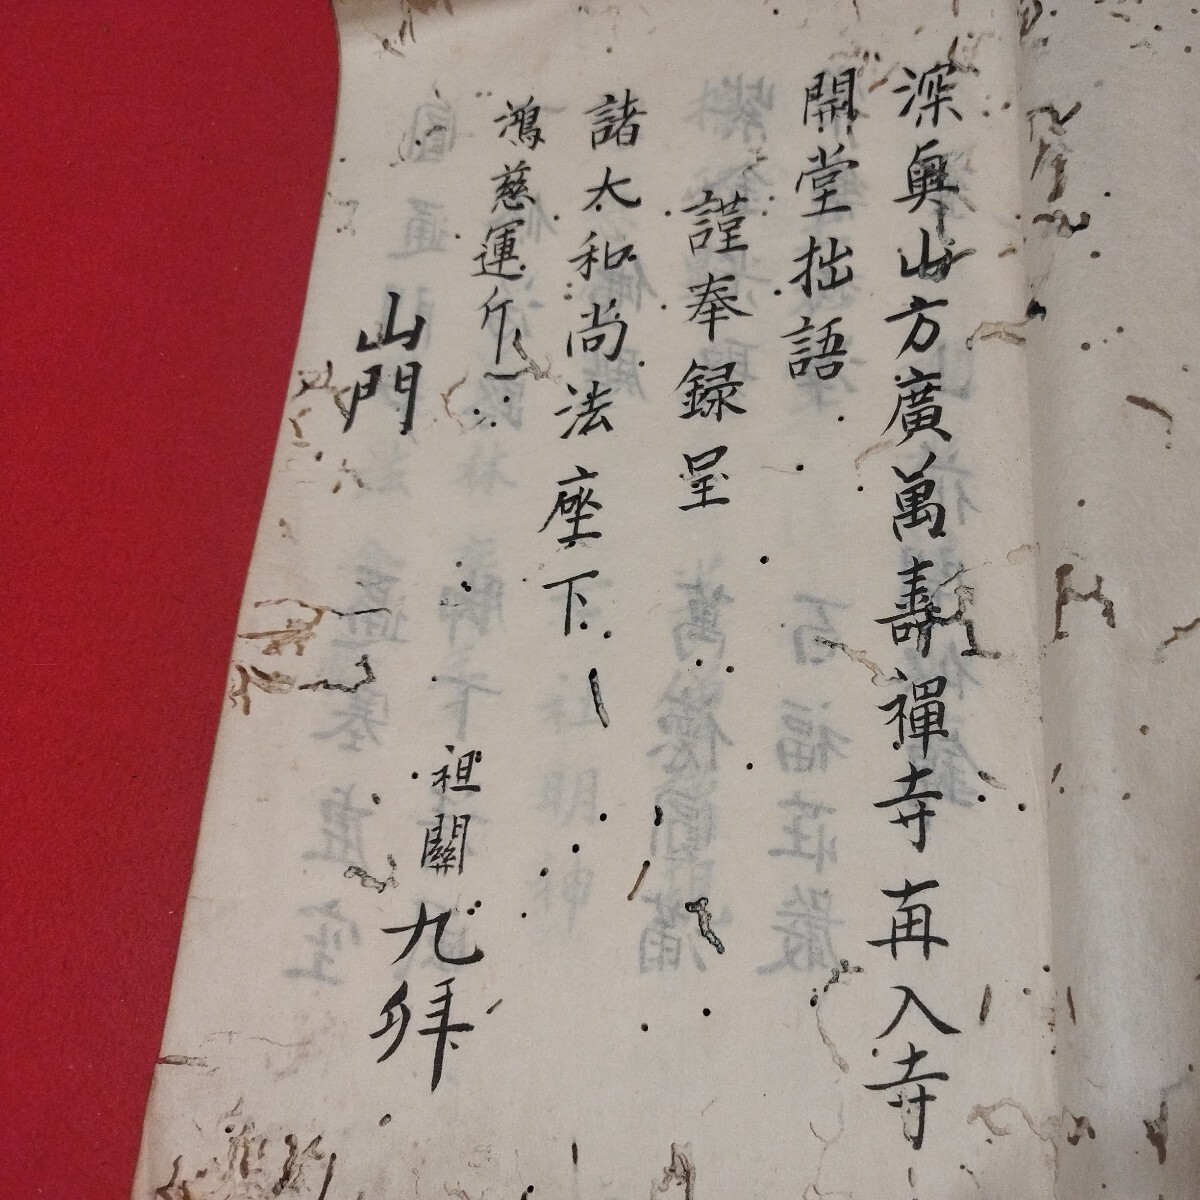 深奥山方廣萬壽禪寺再入寺
開堂拙語
謹奉録呈
諸大和尚法座下
鴻慈運斤
祖關九拜
山門